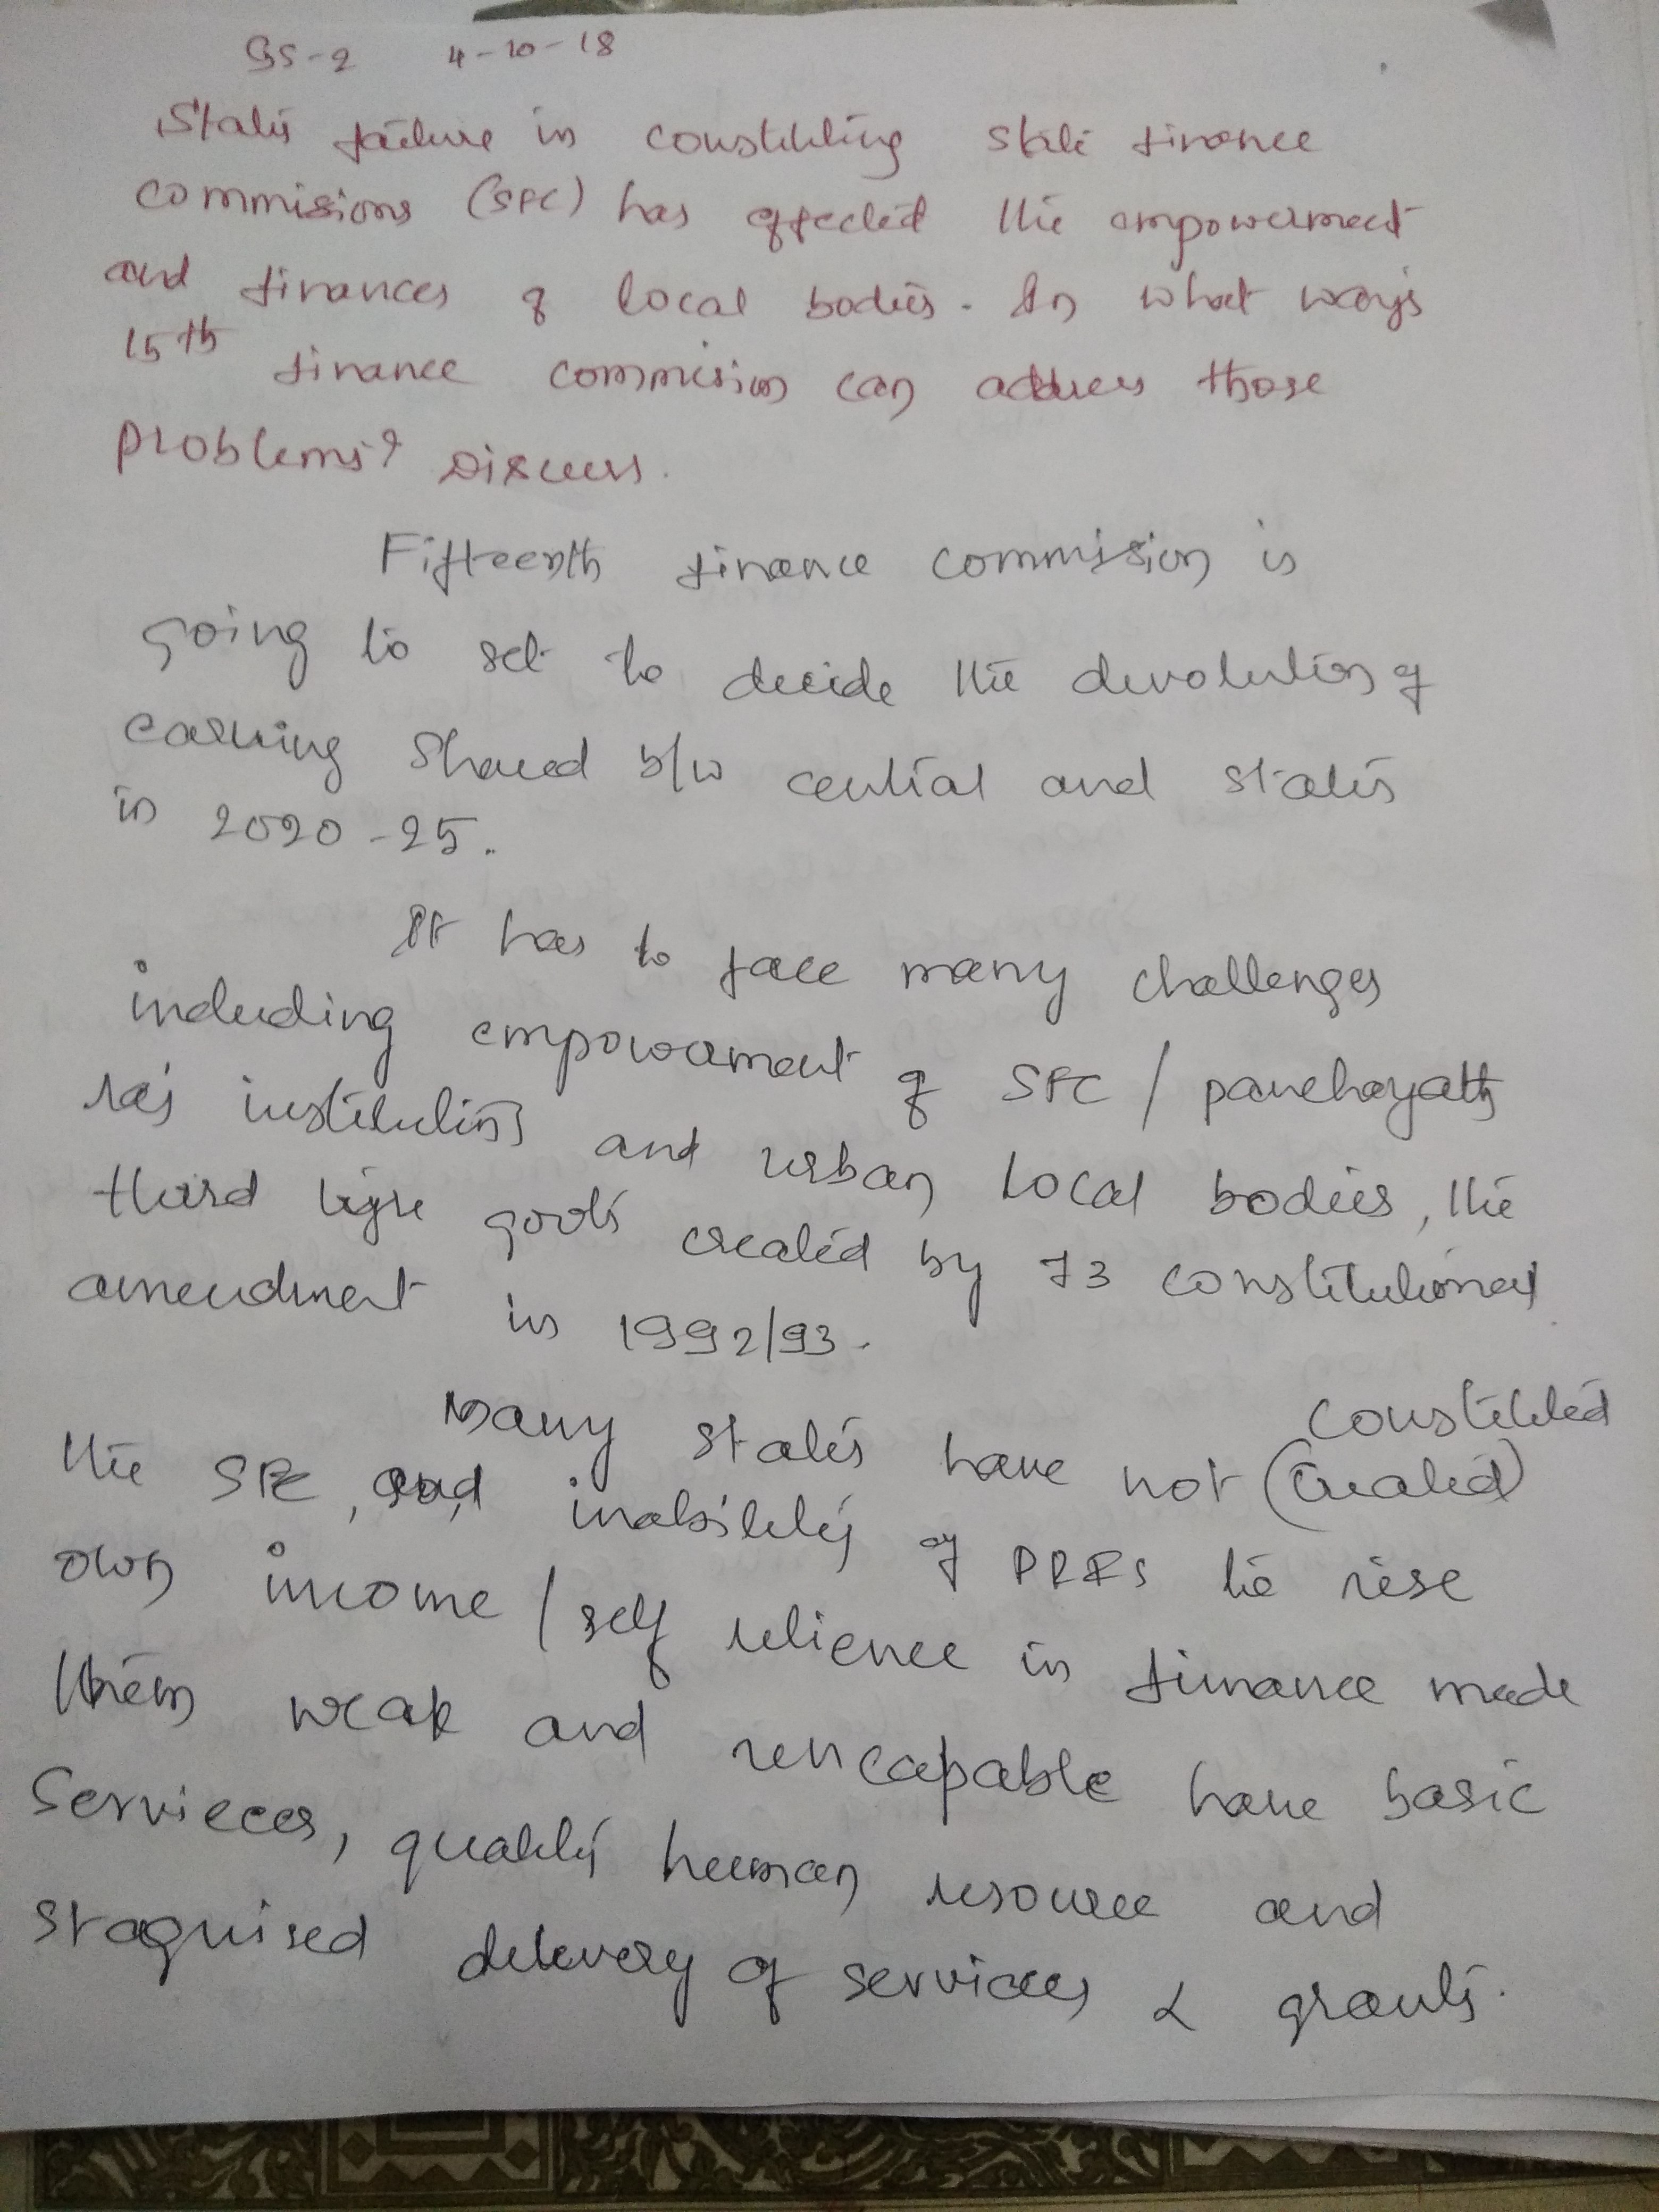 GS-2 4-10-18
States failure in constituting state finance
commisions (SFC) has effected the empowerment
and finances of local bodies. In what ways
15th finance commision can address those
problems? Discuss.
Fifteenth finance commission is
going to set to decide the devolution of
earning shared b/w central and states
in 2020-25.
It has to face many challenges
including empowerment of SFC / panchayath
raj institutions and urban local bodies, the
third govts created by 73 constitutional
amendment in 1992/93.
Many states have not (created) constituted
the SFC, and inability of PRIs to rise
own income / self relience in finance made
them weak and uncapable have basic
services, quality human resource and
delevery of services & grants.